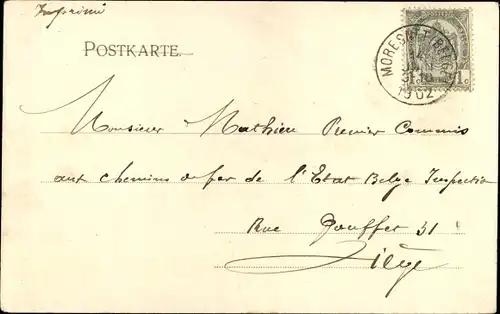 Imprimé
POSTKARTE.
1902
1c
Monsieur Mathieu Premier Commis
aux chemins de fer de l'Etat Belge Inspection
Rue Jouffet 31
Liége